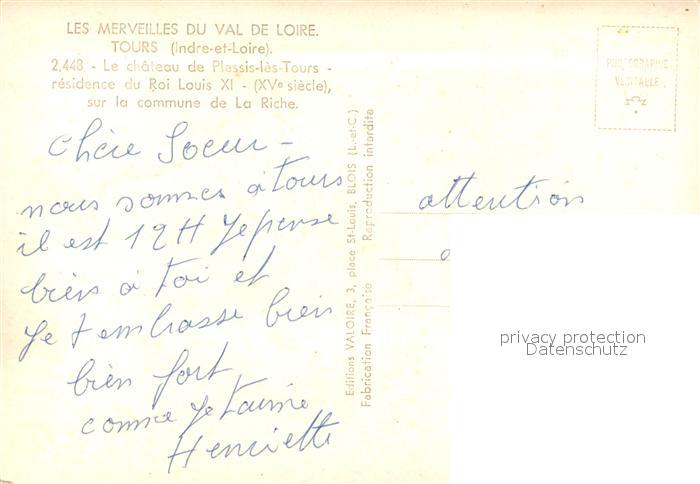 LES MERVEILLES DU VAL DE LOIRE.
TOURS (Indre-et-Loire).
2,448 - Le château de Plessis-lès-Tours -
résidence du Roi Louis XI - (XVe siècle),
sur la commune de La Riche.
Chère Soeur -
nous sommes à tours
il est 12H Je pense
bien à toi et
Je t embrasse bien
bien fort
comme Je taime
Henriette
Editions VALOIRE, 3, place St-Louis, BLOIS (L.-et-C.)
Fabrication Française Reproduction interdite
PHOTOGRAPHIE
VÉRITABLE
attention
privacy protection
Datenschutz